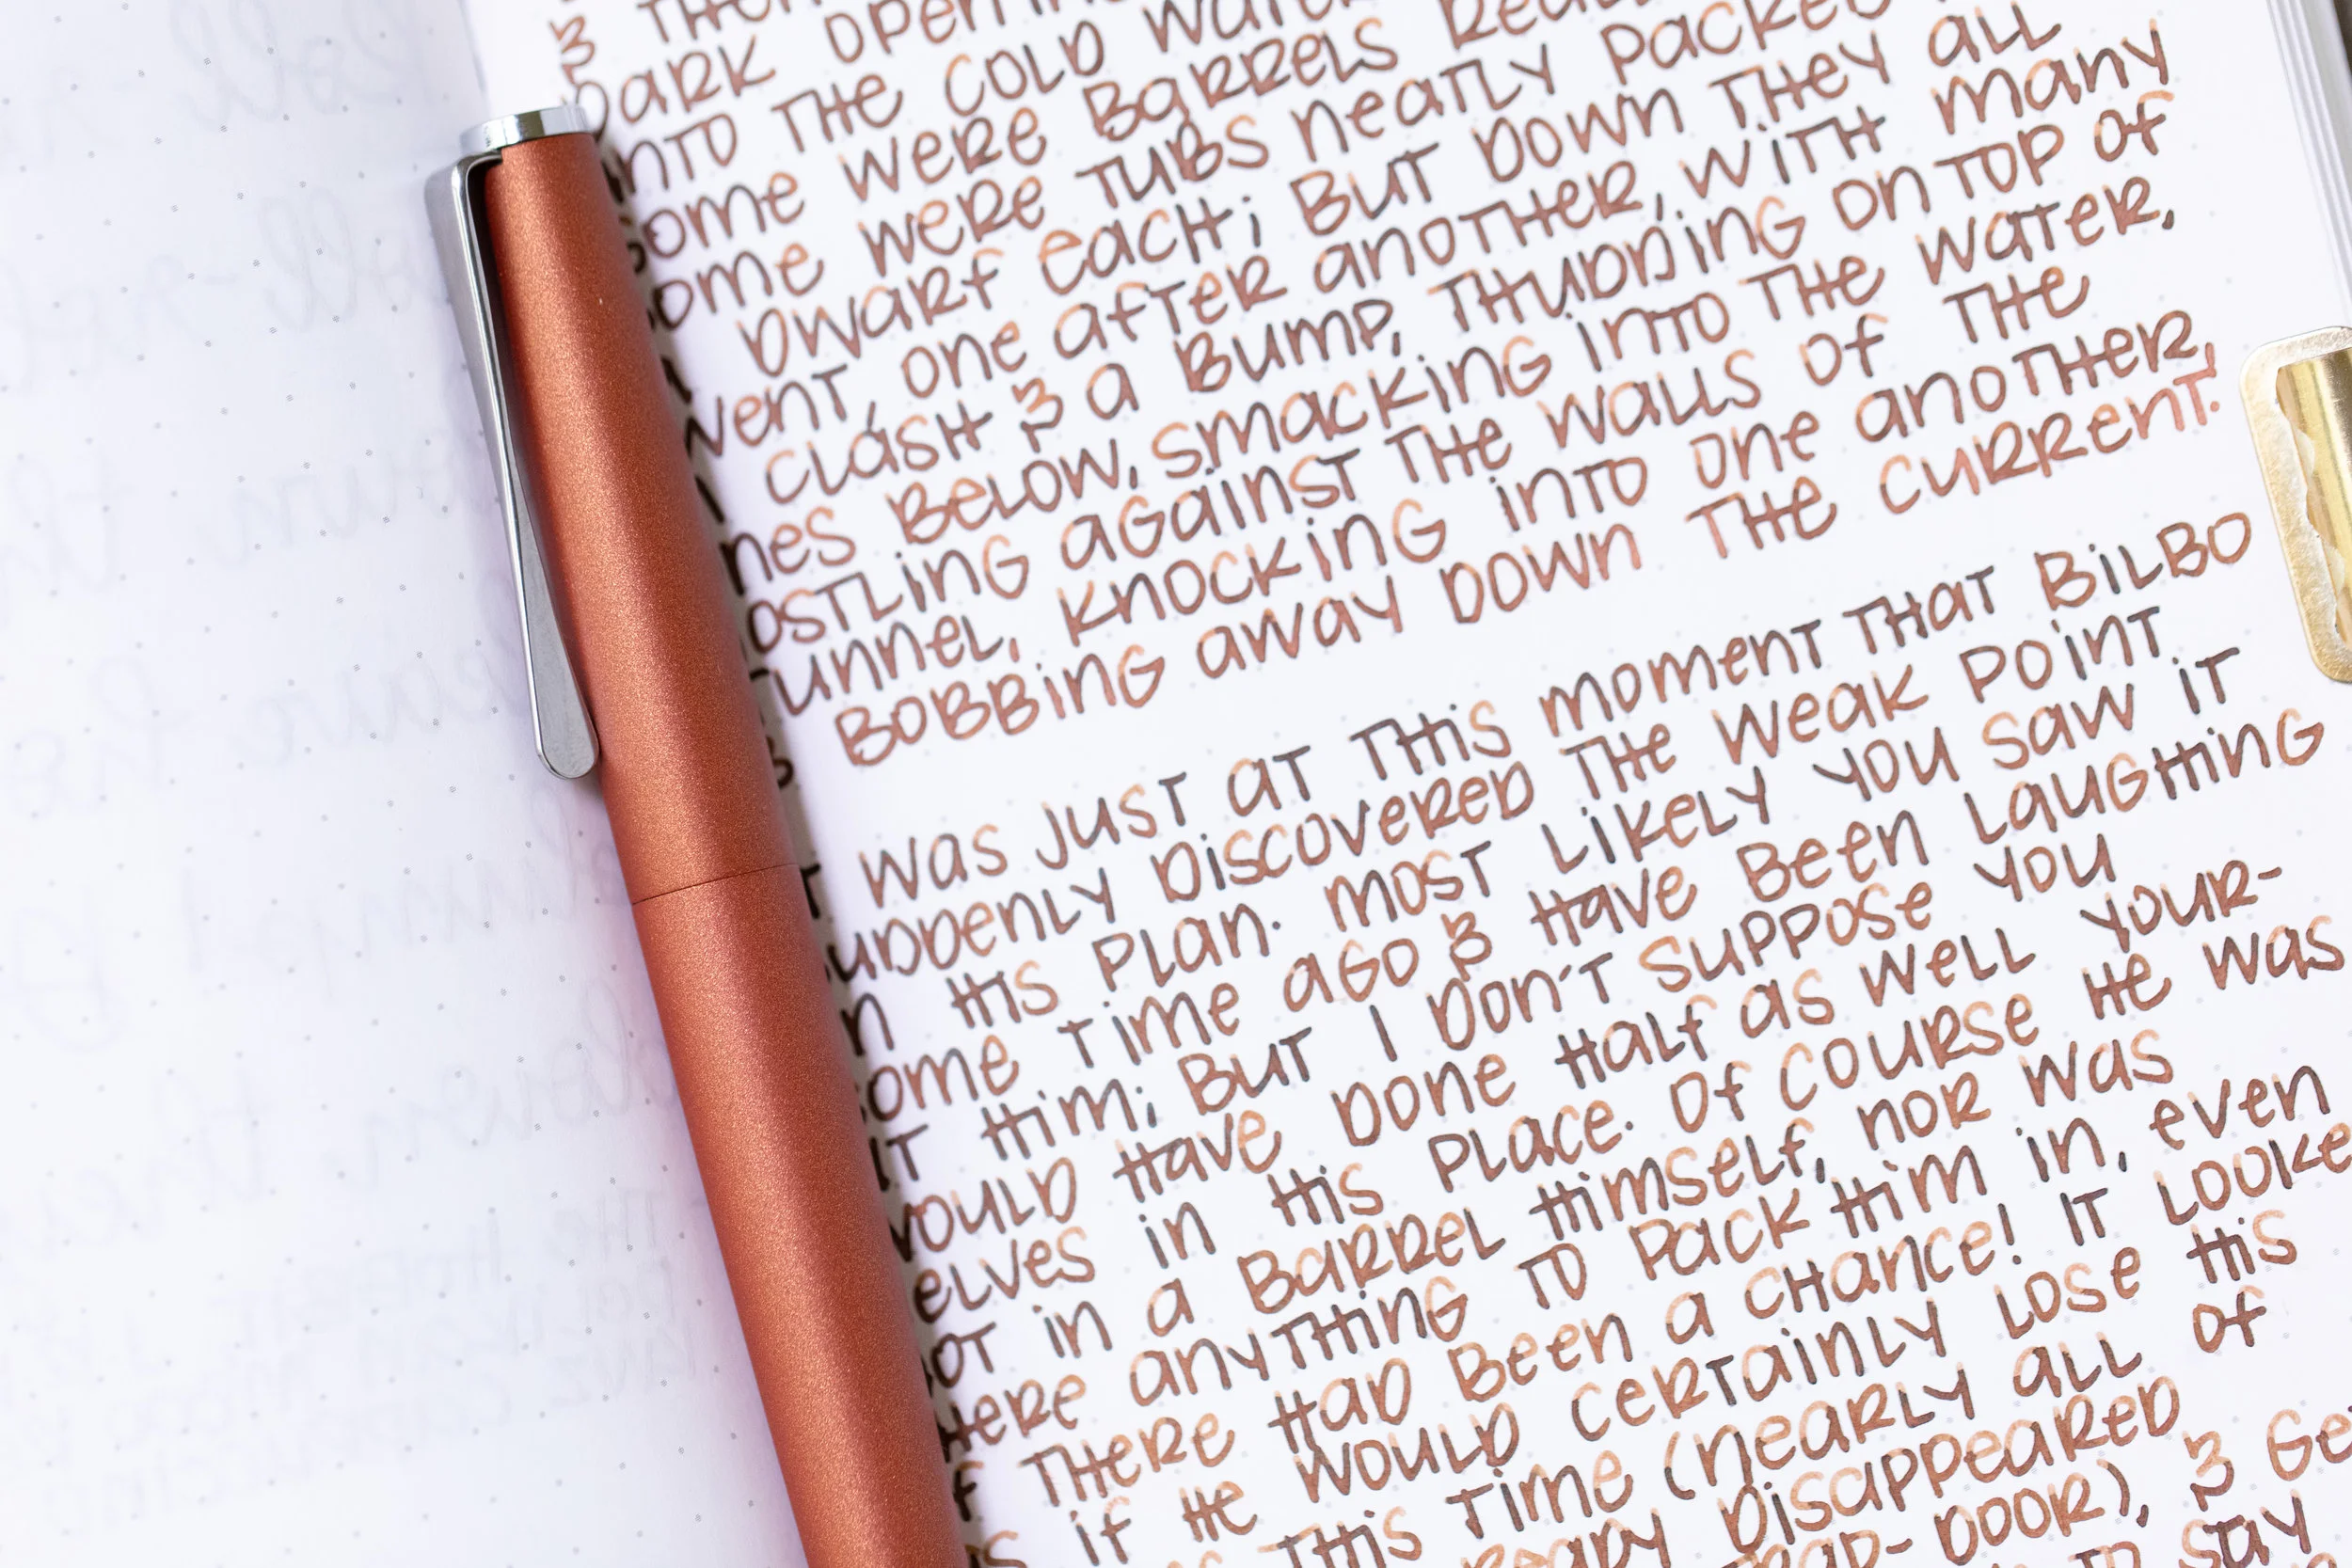 & THEN
DARK OPENING
INTO THE COLD WATER
SOME WERE BARRELS REALLY
SOME WERE TUBS NEATLY PACKED
A DWARF EACH; BUT DOWN THEY ALL
WENT, ONE AFTER ANOTHER, WITH MANY
A CLASH & A BUMP, THUDDING ON TOP OF
NES BELOW, SMACKING INTO THE WATER,
OSTLING AGAINST THE WALLS OF THE
TUNNEL, KNOCKING INTO ONE ANOTHER,
& BOBBING AWAY DOWN THE CURRENT.
T WAS JUST AT THIS MOMENT THAT BILBO
UDDENLY DISCOVERED THE WEAK POINT
N HIS PLAN. MOST LIKELY YOU SAW IT
SOME TIME AGO & HAVE BEEN LAUGHING
AT HIM; BUT I DON'T SUPPOSE YOU
WOULD HAVE DONE HALF AS WELL YOUR-
ELVES IN HIS PLACE. OF COURSE HE WAS
NOT IN A BARREL HIMSELF, NOR WAS
HERE ANYTHING TO PACK HIM IN, EVEN
F THERE HAD BEEN A CHANCE! IT LOOKE
S IF HE WOULD CERTAINLY LOSE HIS
THIS TIME (NEARLY ALL OF
EADY DISAPPEARED
RAP-DOOR), & GE
TO STAY